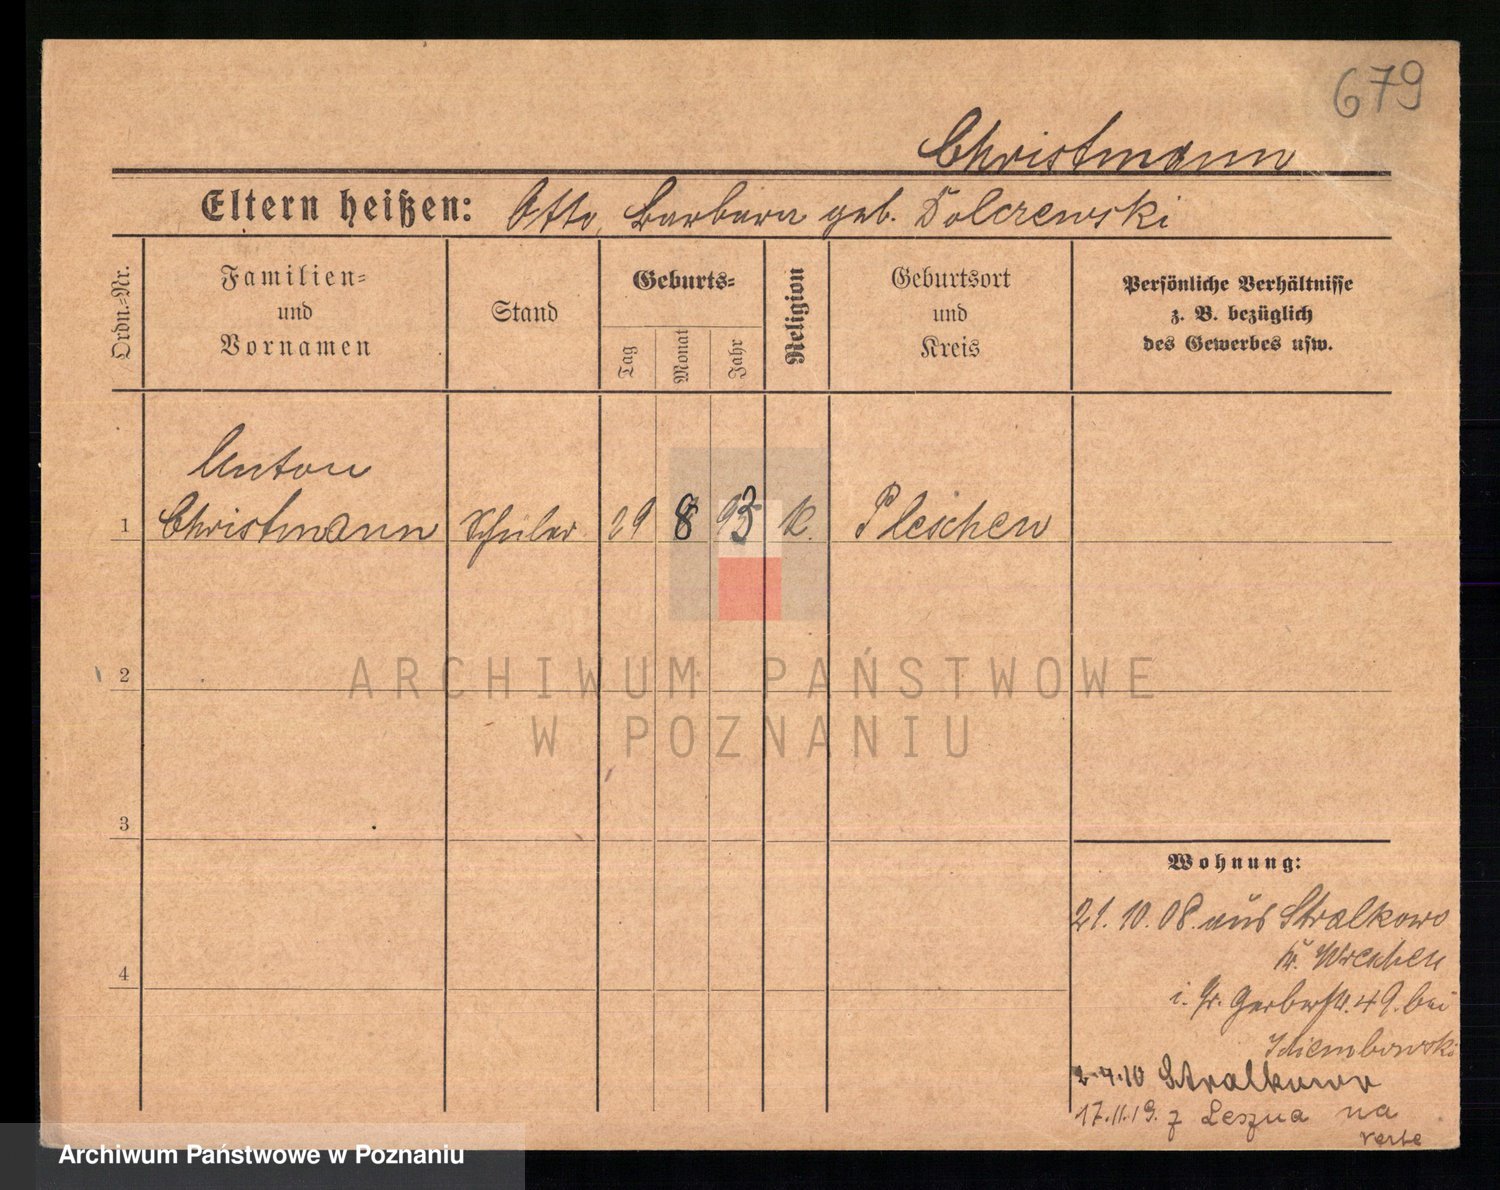 679
Christmann
Eltern heißen: Otto, Barbara geb. Dolczewski
Ordn.-Nr.
Familien-
und
Vornamen
Stand
Geburts-
Tag
Monat
Jahr
Religion
Geburtsort
und
Kreis
Persönliche Verhältnisse
z. B. bezüglich
des Gewerbes usw.
Anton
1 Christmann Schüler 29 8 93 K. Pleschen
2
3
4
Wohnung:
21. 10. 08. aus Stralkowo
Kr. Wreschen
i. Gr. Gerberstr. 49. bei
2.4.10 Stralkowo
17.11.19. z Leszna na
verte
ARCHIWUM PAŃSTWOWE
W POZNANIU
Archiwum Państwowe w Poznaniu